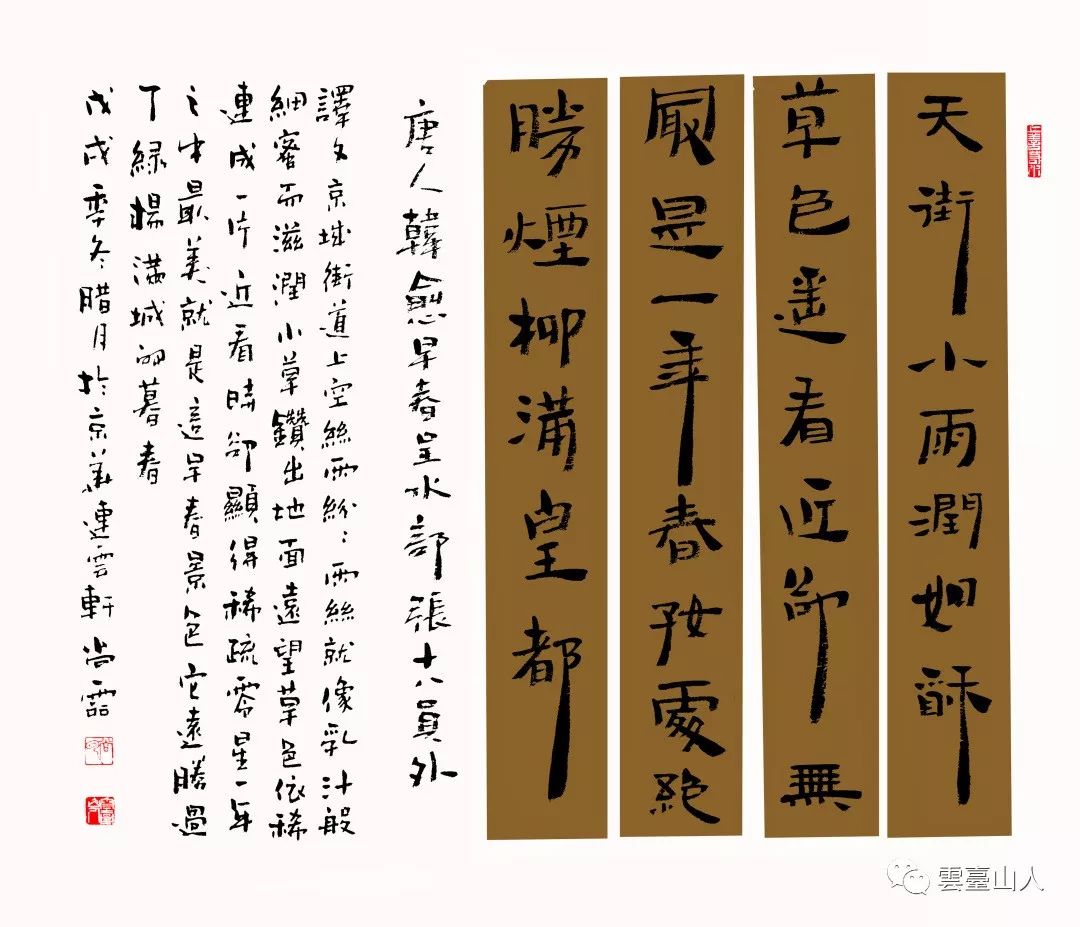 天街小雨潤如酥
草色遙看近卻無
最是一年春好處絕
勝煙柳滿皇都
唐人韓愈早春呈水部張十八員外
譯文京城街道上空絲雨紛〻雨絲就像乳汁般
細密而滋潤小草鑽出地面遠望草色依稀
連成一片近看時卻顯得稀疏零星一年
之中最美就是這早春景色它遠勝過
了綠楊滿城的暮春
戊戌季冬腊月於京華連雲軒尚
雲臺山人